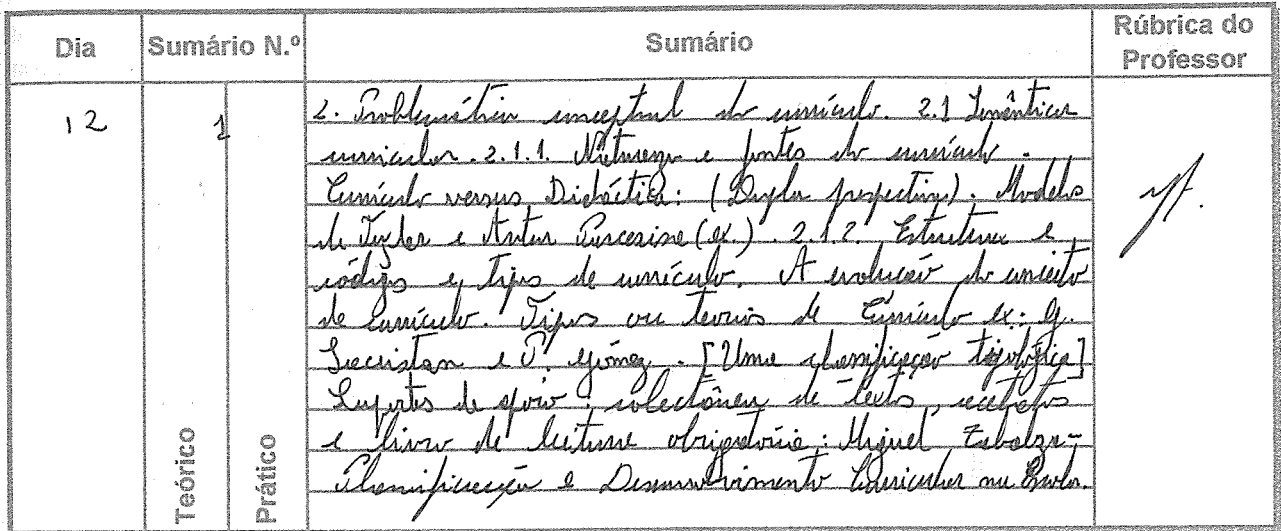 Dia Sumário N.º Sumário Rúbrica do Professor
12 1
2. Problemática conceptual do currículo. 2.1 Semântica
curricular. 2.1.1. Natureza e fontes do currículo.
Currículo versus Didáctica: (Dupla perspectiva). Modelos
de Tyler e (ex.). 2.1.2. Estrutura e
códigos e tipos de currículo. A evolução do conceito
de Currículo. Tipos ou teorias de Currículo ex: G.
Sacristan e P. Gómez. [Uma classificação tipológica]
Suportes de apoio: colectânea de textos,
e livro de leitura obrigatória: Miguel Zabalza-
Planificação e Desenvolvimento Curricular na Escola.
Teórico
Prático